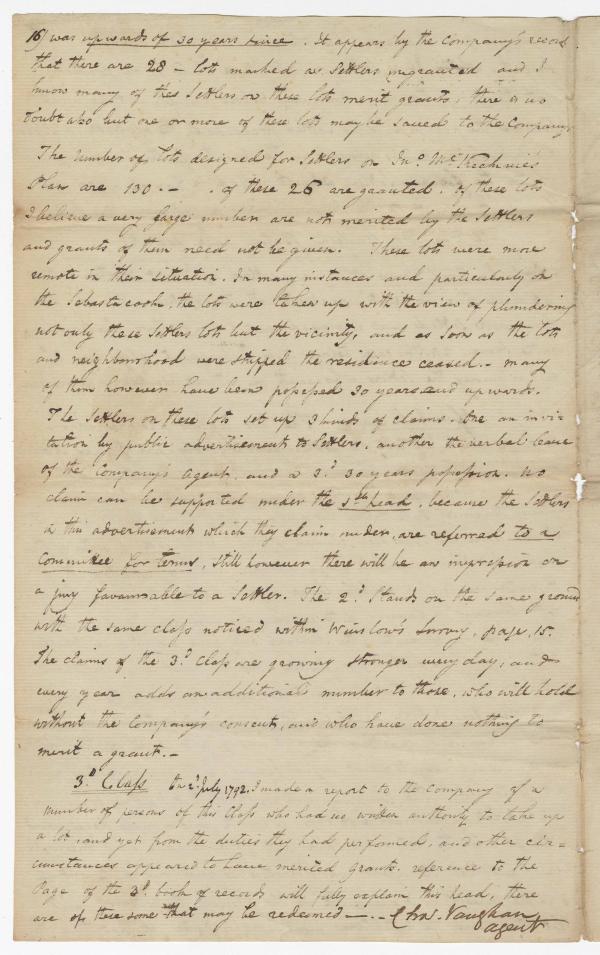 16) was upwards of 30 years since. It appears by the Company's record
that there are 28 – lots marked as Settlers ungranted and I
know many of the Settlers on these lots merit grants, there is no
doubt also but one or more of these lots may be saved to the Company
The number of lots designed for Settlers on Jno Mc Kechnie's
Plan are 130.– . of these 26 are granted. Of these lots
I believe a very large number are not merited by the Settlers
and grants of them need not be given. These lots were more
remote in their situation. In many instances and particularly on
the Sebastacook, the lots were taken up with the view of plundering
not only these Settlers lots but the vicinity, and as soon as the lots
and neighbourhood were stripped the residence ceased.– many
of them however have been possessed 30 years and upwards.
The Settlers on these lots set up 3 kinds of claims. One an invi-
tation by public advertisement to Settlers, another the verbal leave
of the Company's Agent, and a 3.d 30 years possession. No
claim can be supported under the head, because the Settlers
in this advertisement which they claim under, are referred to a
Committee for terms, still however there will be an impression on
a jury favourable to a Settler. The 2.d Stands on the same ground
with the same class noticed within Winslow's Survey, page, 15.
The claims of the 3.d Class are growing stronger every day, and
every year adds an additional number to those, who will hold
without the Company's consent, and who have done nothing to
merit a grant.–
3.d Class On 2.d July 1792. I made a report to the Company of a
number of persons of this Class who had no written authority to take up
a lot, and yet from the duties they had performed, and other cir=
cumstances appeared to have merited grants. reference to the
Page of the 3.d book of records will fully explain this head, there
are of these some that may be redeemed –. – Chas. Vaughan
agent